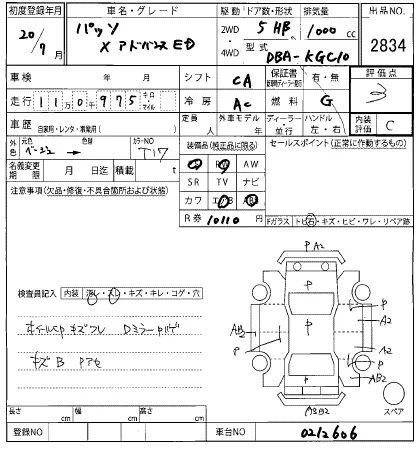 初度登録年月 車名・グレード 駆動 ドア数・形状 排気量 出品NO.
20/9月 パッソ 2WD 5 HB 1000cc 2834
X アドバンスED 4WD 型式 DBA-KGC10
車検 年 月 シフト CA 保証書 有・無 評価点
走行 110千975 キロ・マイル 冷房 AC 燃料 G 3
車歴 自家用・レンタ・事業用( ) 定員 人 外車モデル 年 ディーラー・並行 ハンドル 左・右 内装評価 C
外色 元色 ベージュ 色替 カラーNO T17 装備品(純正品に限る) セールスポイント(正常に作動するもの)
名義変更期限 月 日迄 積載 t AW
注意事項(欠品・修復・不具合箇所および状態) SR TV ナビ
カワ エアB AB
R券 10110 Fガラス トビ石・キズ・ヒビ・ワレ・リペア跡
検査員記入 内装 汚レ・スレ・キズ・キレ・コゲ・穴
ホイールCPキズフレ DミラーPハゲ
キズB Pアセ
P A2
P
P
P
A2
AB2
P
P
A2
P
AB2
A3B2
スペア
長さ cm 幅 cm 高さ cm
登録NO 車台NO 0212606